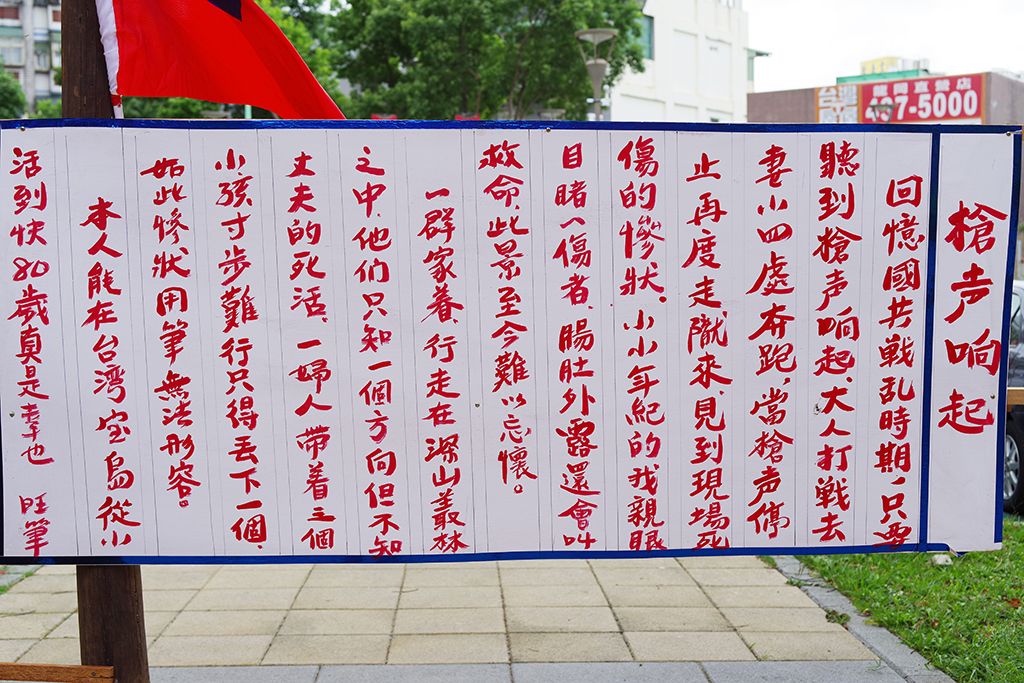 槍声响起
回憶國共戦乱時期，只要
聽到槍声响起、大人打戦去
妻小四處奔跑，當槍声停
止再度走隴來，見到現場死
傷的慘狀，小小年紀的我親眼
目睹一傷者、腸肚外露還會叫
救命，此景至今難以忘懷。
一群家眷、行走在深山叢林
之中，他们只知一個方向但不知
丈夫的死活，一婦人帶着三個
小孩寸步難行只得丟下一個，
如此慘狀用筆無法形容。
本人能在台湾宝島從小
活到快80歲真是幸也 旺筆
龍岡直營店
437-5000